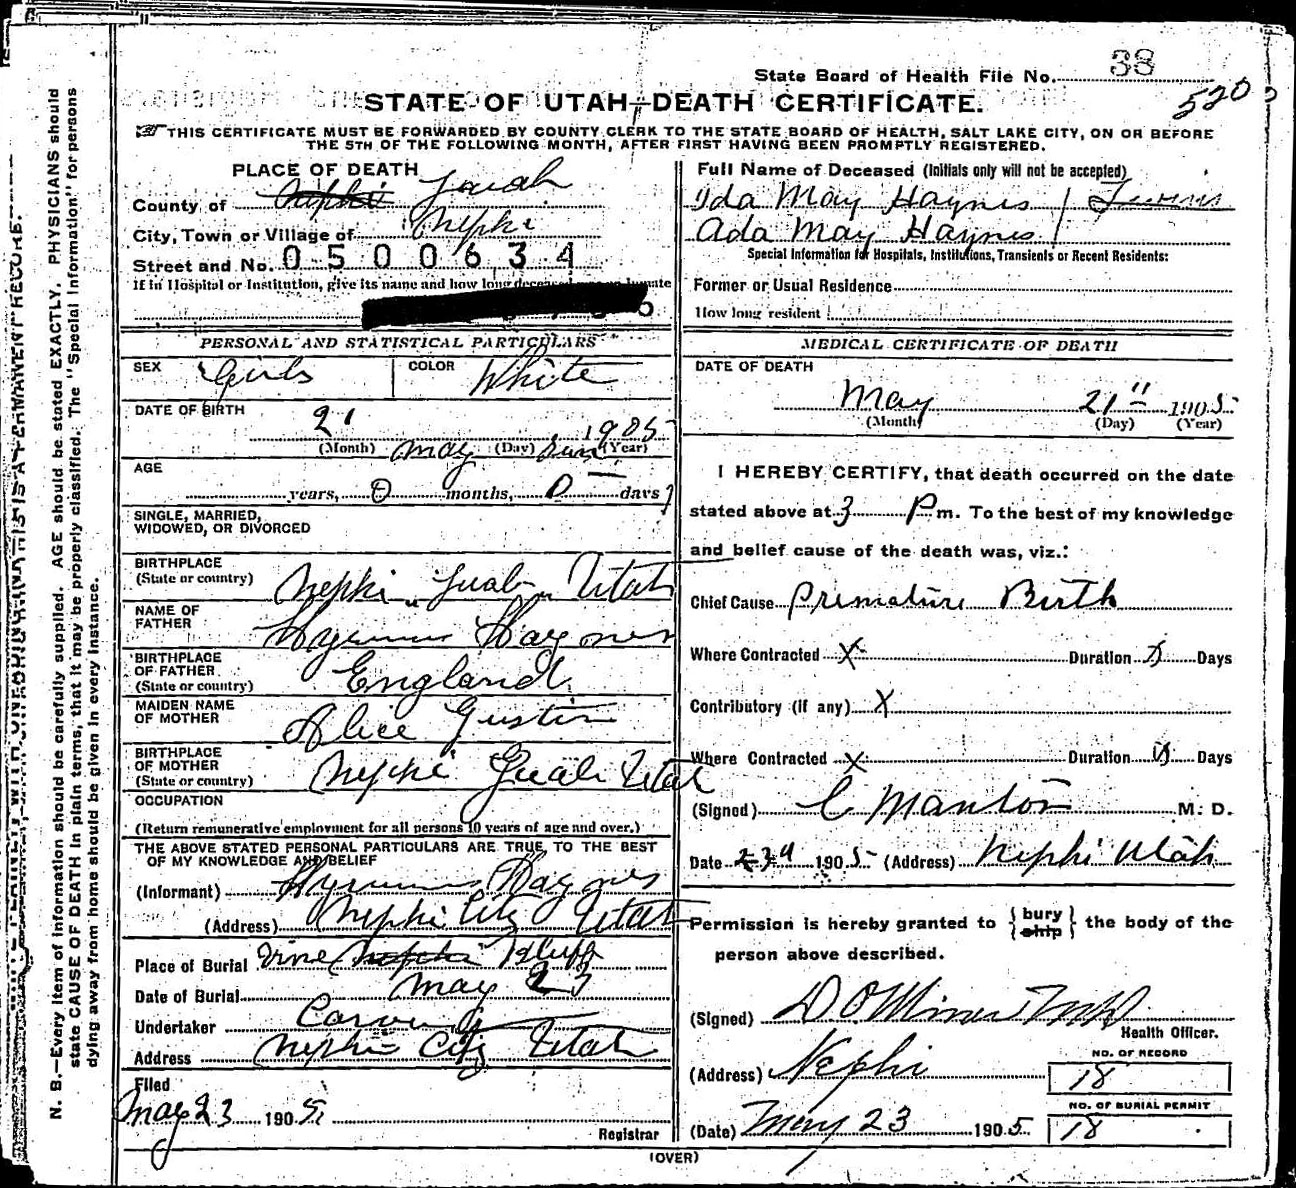 State Board of Health File No. 38
520
STATE OF UTAH—DEATH CERTIFICATE.
THIS CERTIFICATE MUST BE FORWARDED BY COUNTY CLERK TO THE STATE BOARD OF HEALTH, SALT LAKE CITY, ON OR BEFORE
THE 5TH OF THE FOLLOWING MONTH, AFTER FIRST HAVING BEEN PROMPTLY REGISTERED.
PLACE OF DEATH
County of Nephi Juab
City, Town or Village of Nephi
Street and No. 0500634
If in Hospital or Institution, give its name and how long
PERSONAL AND STATISTICAL PARTICULARS
SEX Girls COLOR White
DATE OF BIRTH
21 1905
(Month) May (Day) (Year)
AGE
years, 0 months, 0 days
SINGLE, MARRIED,
WIDOWED, OR DIVORCED
BIRTHPLACE
(State or country) Nephi Juab Utah
NAME OF
FATHER Hyrum Haynes
BIRTHPLACE
OF FATHER
(State or country) England
MAIDEN NAME
OF MOTHER Alice Gustin
BIRTHPLACE
OF MOTHER
(State or country) Nephi Juab Utah
OCCUPATION
(Return remunerative employment for all persons 10 years of age and over.)
THE ABOVE STATED PERSONAL PARTICULARS ARE TRUE TO THE BEST
OF MY KNOWLEDGE AND BELIEF
(Informant) Hyrum Haynes
(Address) Nephi City Utah
Place of Burial Vine Nephi Bluff
Date of Burial May 23
Undertaker
Address Nephi City Utah
Filed
May 23 1905
Registrar
Full Name of Deceased (Initials only will not be accepted)
Ida May Haynes / Twins
Ada May Haynes /
Special Information for Hospitals, Institutions, Transients or Recent Residents:
Former or Usual Residence
How long resident
MEDICAL CERTIFICATE OF DEATH
DATE OF DEATH
May 21" 1905
(Month) (Day) (Year)
I HEREBY CERTIFY, that death occurred on the date
stated above at 3 P m. To the best of my knowledge
and belief cause of the death was, viz.:
Chief Cause Premature Birth
Where Contracted X Duration Days
Contributory (if any) X
Where Contracted X Duration Days
(Signed) M. D.
Date 23" 1905 (Address) Nephi Utah
Permission is hereby granted to {bury ship} the body of the
person above described.
(Signed) D O Miner MD
Health Officer.
(Address) Nephi
NO. OF RECORD
18
(Date) May 23 1905.
NO. OF BURIAL PERMIT
18
(OVER)
N. B.—Every item of information should be carefully supplied. AGE should be stated EXACTLY. PHYSICIANS should
state CAUSE OF DEATH in plain terms, that it may be properly classified. The "Special Information" for persons
dying away from home should be given in every instance.